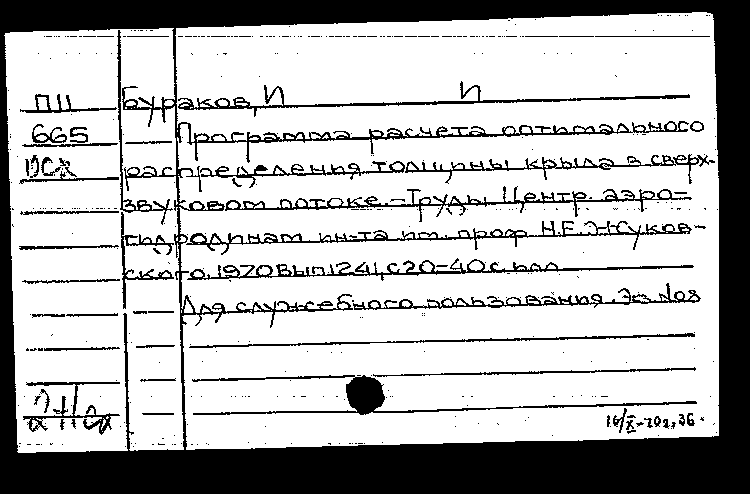 П11 Бураков, И И
665 Программа расчета оптимального
ДСП распределения толщины крыла в сверх-
звуковом потоке.-Труды Центр. аэро-
гидродинам ин-та им. проф Н.Е.Жуков-
ского.1970 Вып1241,с20-40с илл
Для служебного пользования. Эк №08
16/X-70г,